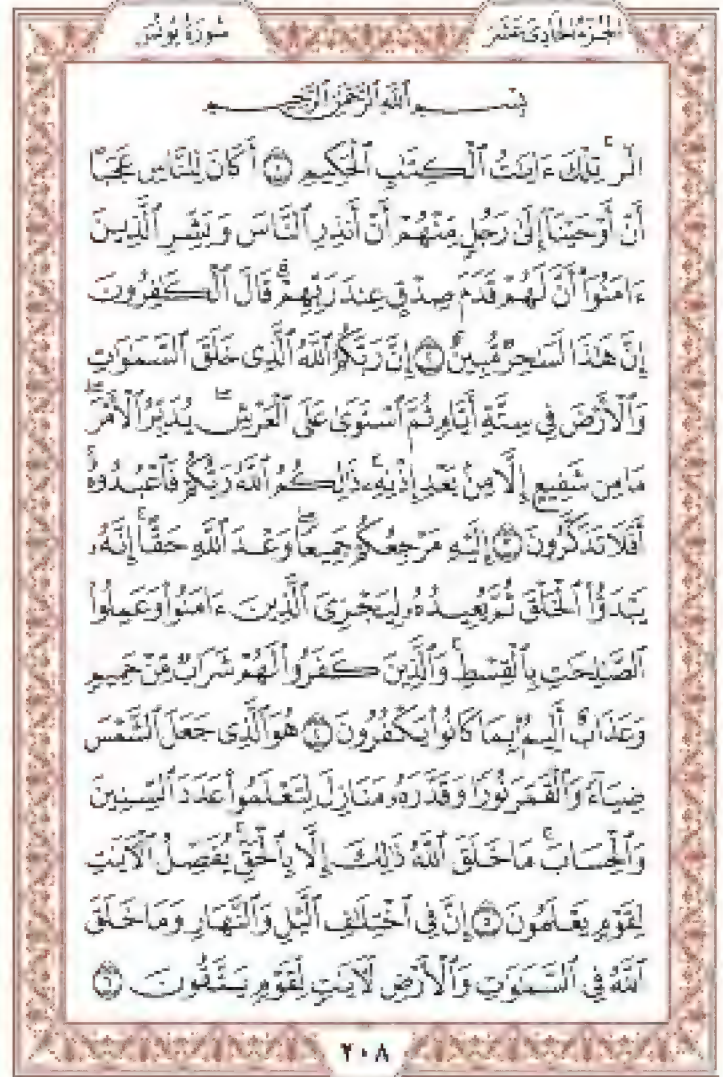 سُورَةُ يُونُسَ
الجُزْءُ الحَادِى عَشَرَ
بِسْمِ ٱللَّهِ ٱلرَّحْمَٰنِ ٱلرَّحِيمِ
الٓر ۚ تِلْكَ ءَايَٰتُ ٱلْكِتَٰبِ ٱلْحَكِيمِ ١ أَكَانَ لِلنَّاسِ عَجَبًا
أَنْ أَوْحَيْنَآ إِلَىٰ رَجُلٍ مِّنْهُمْ أَنْ أَنذِرِ ٱلنَّاسَ وَبَشِّرِ ٱلَّذِينَ
ءَامَنُوٓا۟ أَنَّ لَهُمْ قَدَمَ صِدْقٍ عِندَ رَبِّهِمْ ۗ قَالَ ٱلْكَٰفِرُونَ
إِنَّ هَٰذَا لَسَٰحِرٌ مُّبِينٌ ٢ إِنَّ رَبَّكُمُ ٱللَّهُ ٱلَّذِى خَلَقَ ٱلسَّمَٰوَٰتِ
وَٱلْأَرْضَ فِى سِتَّةِ أَيَّامٍ ثُمَّ ٱسْتَوَىٰ عَلَى ٱلْعَرْشِ ۖ يُدَبِّرُ ٱلْأَمْرَ ۖ
مَا مِن شَفِيعٍ إِلَّا مِنۢ بَعْدِ إِذْنِهِۦ ۚ ذَٰلِكُمُ ٱللَّهُ رَبُّكُمْ فَٱعْبُدُوهُ ۚ
أَفَلَا تَذَكَّرُونَ ٣ إِلَيْهِ مَرْجِعُكُمْ جَمِيعًا ۖ وَعْدَ ٱللَّهِ حَقًّا ۚ إِنَّهُۥ
يَبْدَؤُا۟ ٱلْخَلْقَ ثُمَّ يُعِيدُهُۥ لِيَجْزِىَ ٱلَّذِينَ ءَامَنُوا۟ وَعَمِلُوا۟
ٱلصَّٰلِحَٰتِ بِٱلْقِسْطِ ۚ وَٱلَّذِينَ كَفَرُوا۟ لَهُمْ شَرَابٌ مِّنْ حَمِيمٍ
وَعَذَابٌ أَلِيمٌۢ بِمَا كَانُوا۟ يَكْفُرُونَ ٤ هُوَ ٱلَّذِى جَعَلَ ٱلشَّمْسَ
ضِيَآءً وَٱلْقَمَرَ نُورًا وَقَدَّرَهُۥ مَنَازِلَ لِتَعْلَمُوا۟ عَدَدَ ٱلسِّنِينَ
وَٱلْحِسَابَ ۚ مَا خَلَقَ ٱللَّهُ ذَٰلِكَ إِلَّا بِٱلْحَقِّ ۚ يُفَصِّلُ ٱلْءَايَٰتِ
لِقَوْمٍ يَعْلَمُونَ ٥ إِنَّ فِى ٱخْتِلَٰفِ ٱلَّيْلِ وَٱلنَّهَارِ وَمَا خَلَقَ
ٱللَّهُ فِى ٱلسَّمَٰوَٰتِ وَٱلْأَرْضِ لَءَايَٰتٍ لِّقَوْمٍ يَتَّقُونَ ٦
٢٠٨